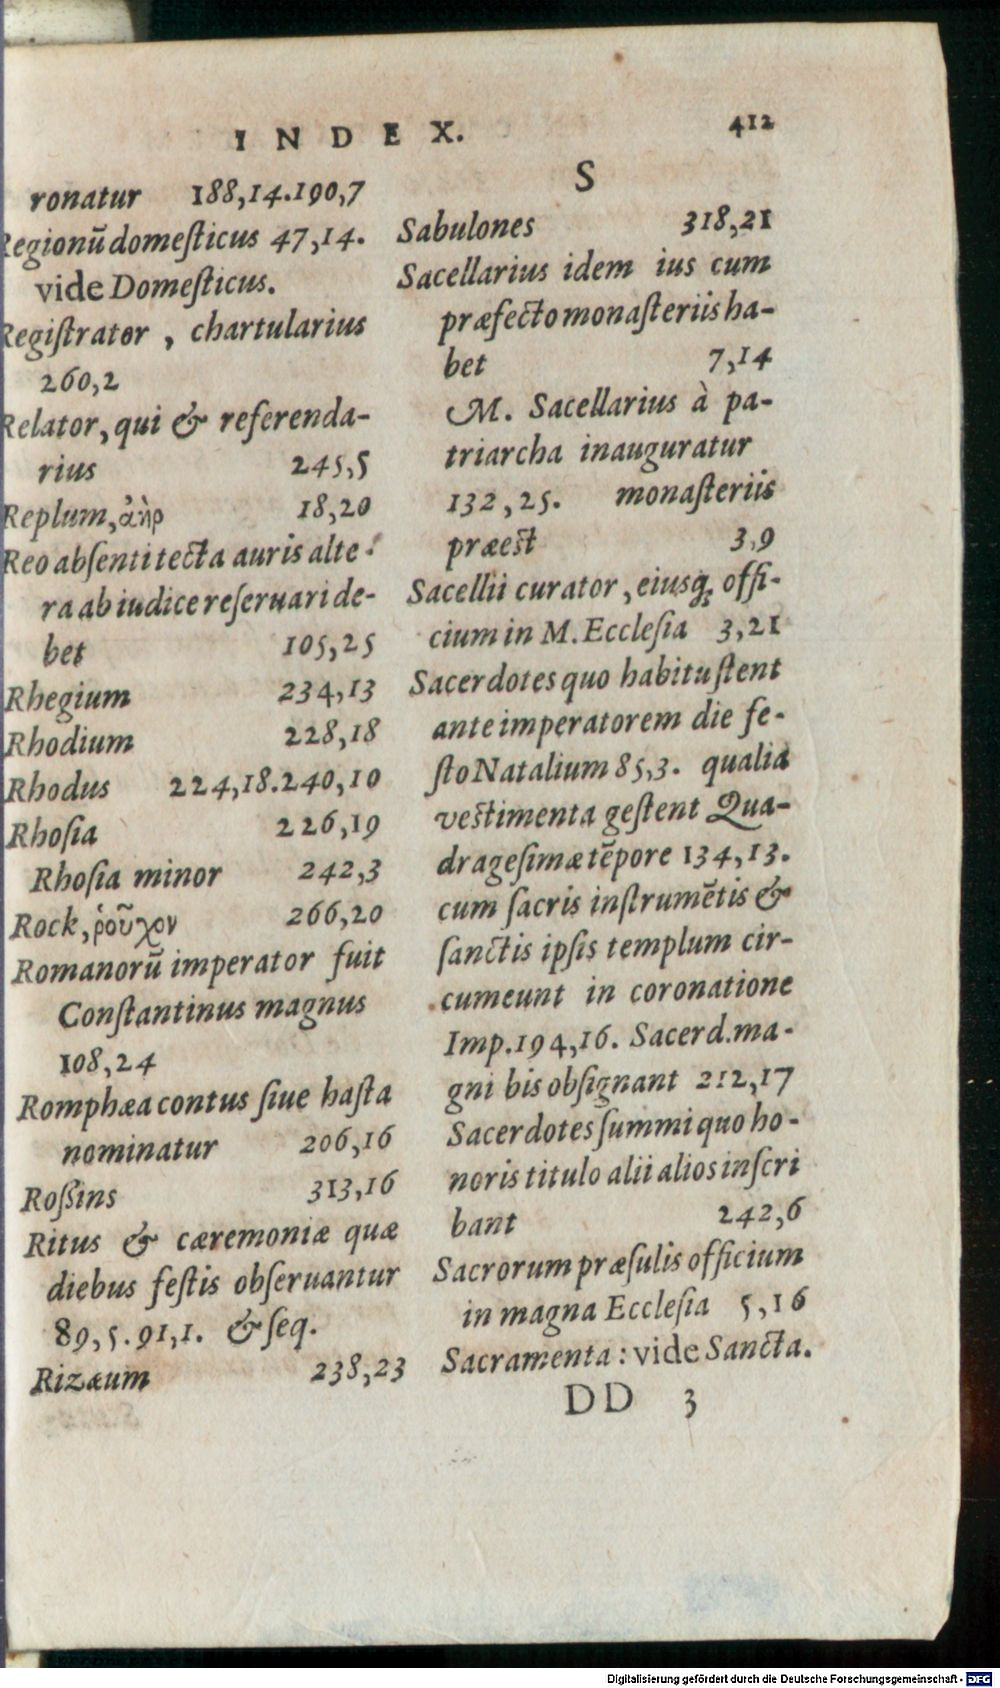 INDEX. 412
ronatur 188,14.190,7
Regionũ domeſticus 47,14.
vide Domeſticus.
Regiſtrator, chartularius
260,2
Relator, qui & referenda-
rius 245,5
Replum, ἀὴρ 18,20
Reo abſenti tecta auris alte-
ra ab iudice reſeruari de-
bet 105,25
Rhegium 234,13
Rhodium 228,18
Rhodus 224,18.240,10
Rhoſia 226,19
Rhoſia minor 242,3
Rock, ῥοῦχον 266,20
Romanorũ imperator fuit
Conſtantinus magnus
108,24
Romphæa contus ſiue haſta
nominatur 206,16
Roſsins 313,16
Ritus & cæremoniæ quæ
diebus feſtis obſeruantur
89,5.91,1. & ſeq.
Rizæum 238,23
S
Sabulones 318,21
Sacellarius idem ius cum
præfecto monaſteriis ha-
bet 7,14
M. Sacellarius à pa-
triarcha inauguratur
132,25. monaſteriis
præest 3,9
Sacellii curator, eiusq; offi-
cium in M. Eccleſia 3,21
Sacerdotes quo habitu ſtent
ante imperatorem die fe-
ſto Natalium 85,3. qualia
vestimenta geſtent Qua-
drageſimæ tẽpore 134,13.
cum ſacris inſtrumẽtis &
ſanctis ipſis templum cir-
cumeunt in coronatione
Imp. 194,16. Sacerd. ma-
gni bis obſignant 212,17
Sacerdotes ſummi quo ho-
noris titulo alii alios inſcri
bant 242,6
Sacrorum præſulis officium
in magna Eccleſia 5,16
Sacramenta: vide Sancta.
DD 3
Digitalisierung gefördert durch die Deutsche Forschungsgemeinschaft - DFG